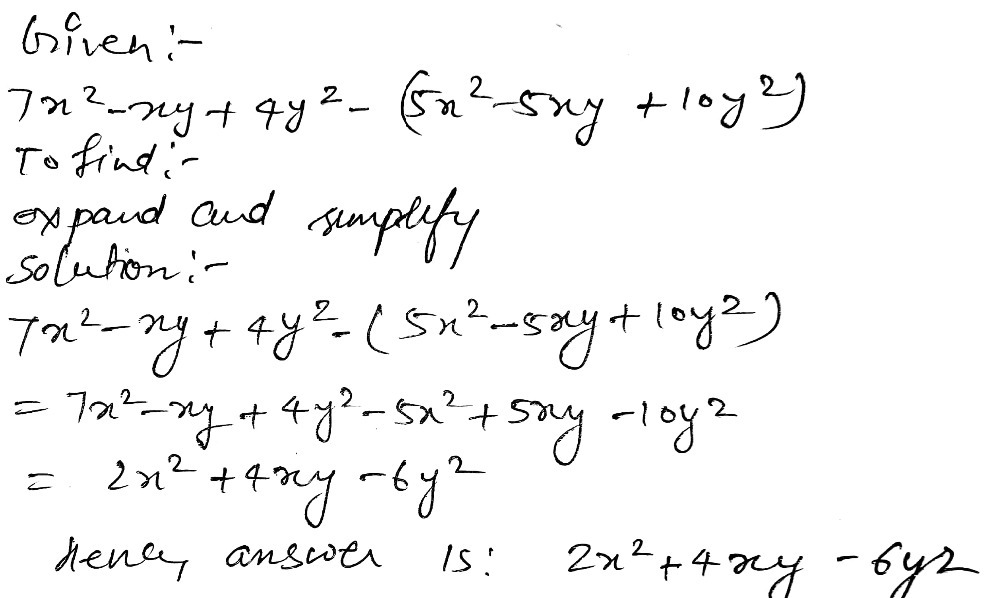 Given:-
7x²-xy+4y²-(5x²-5xy+10y²)
To find:-
expand and simplify
solution:-
7x²-xy+4y²-(5x²-5xy+10y²)
= 7x²-xy+4y²-5x²+5xy-10y²
= 2x²+4xy-6y²
Hence, answer is: 2x²+4xy-6y2